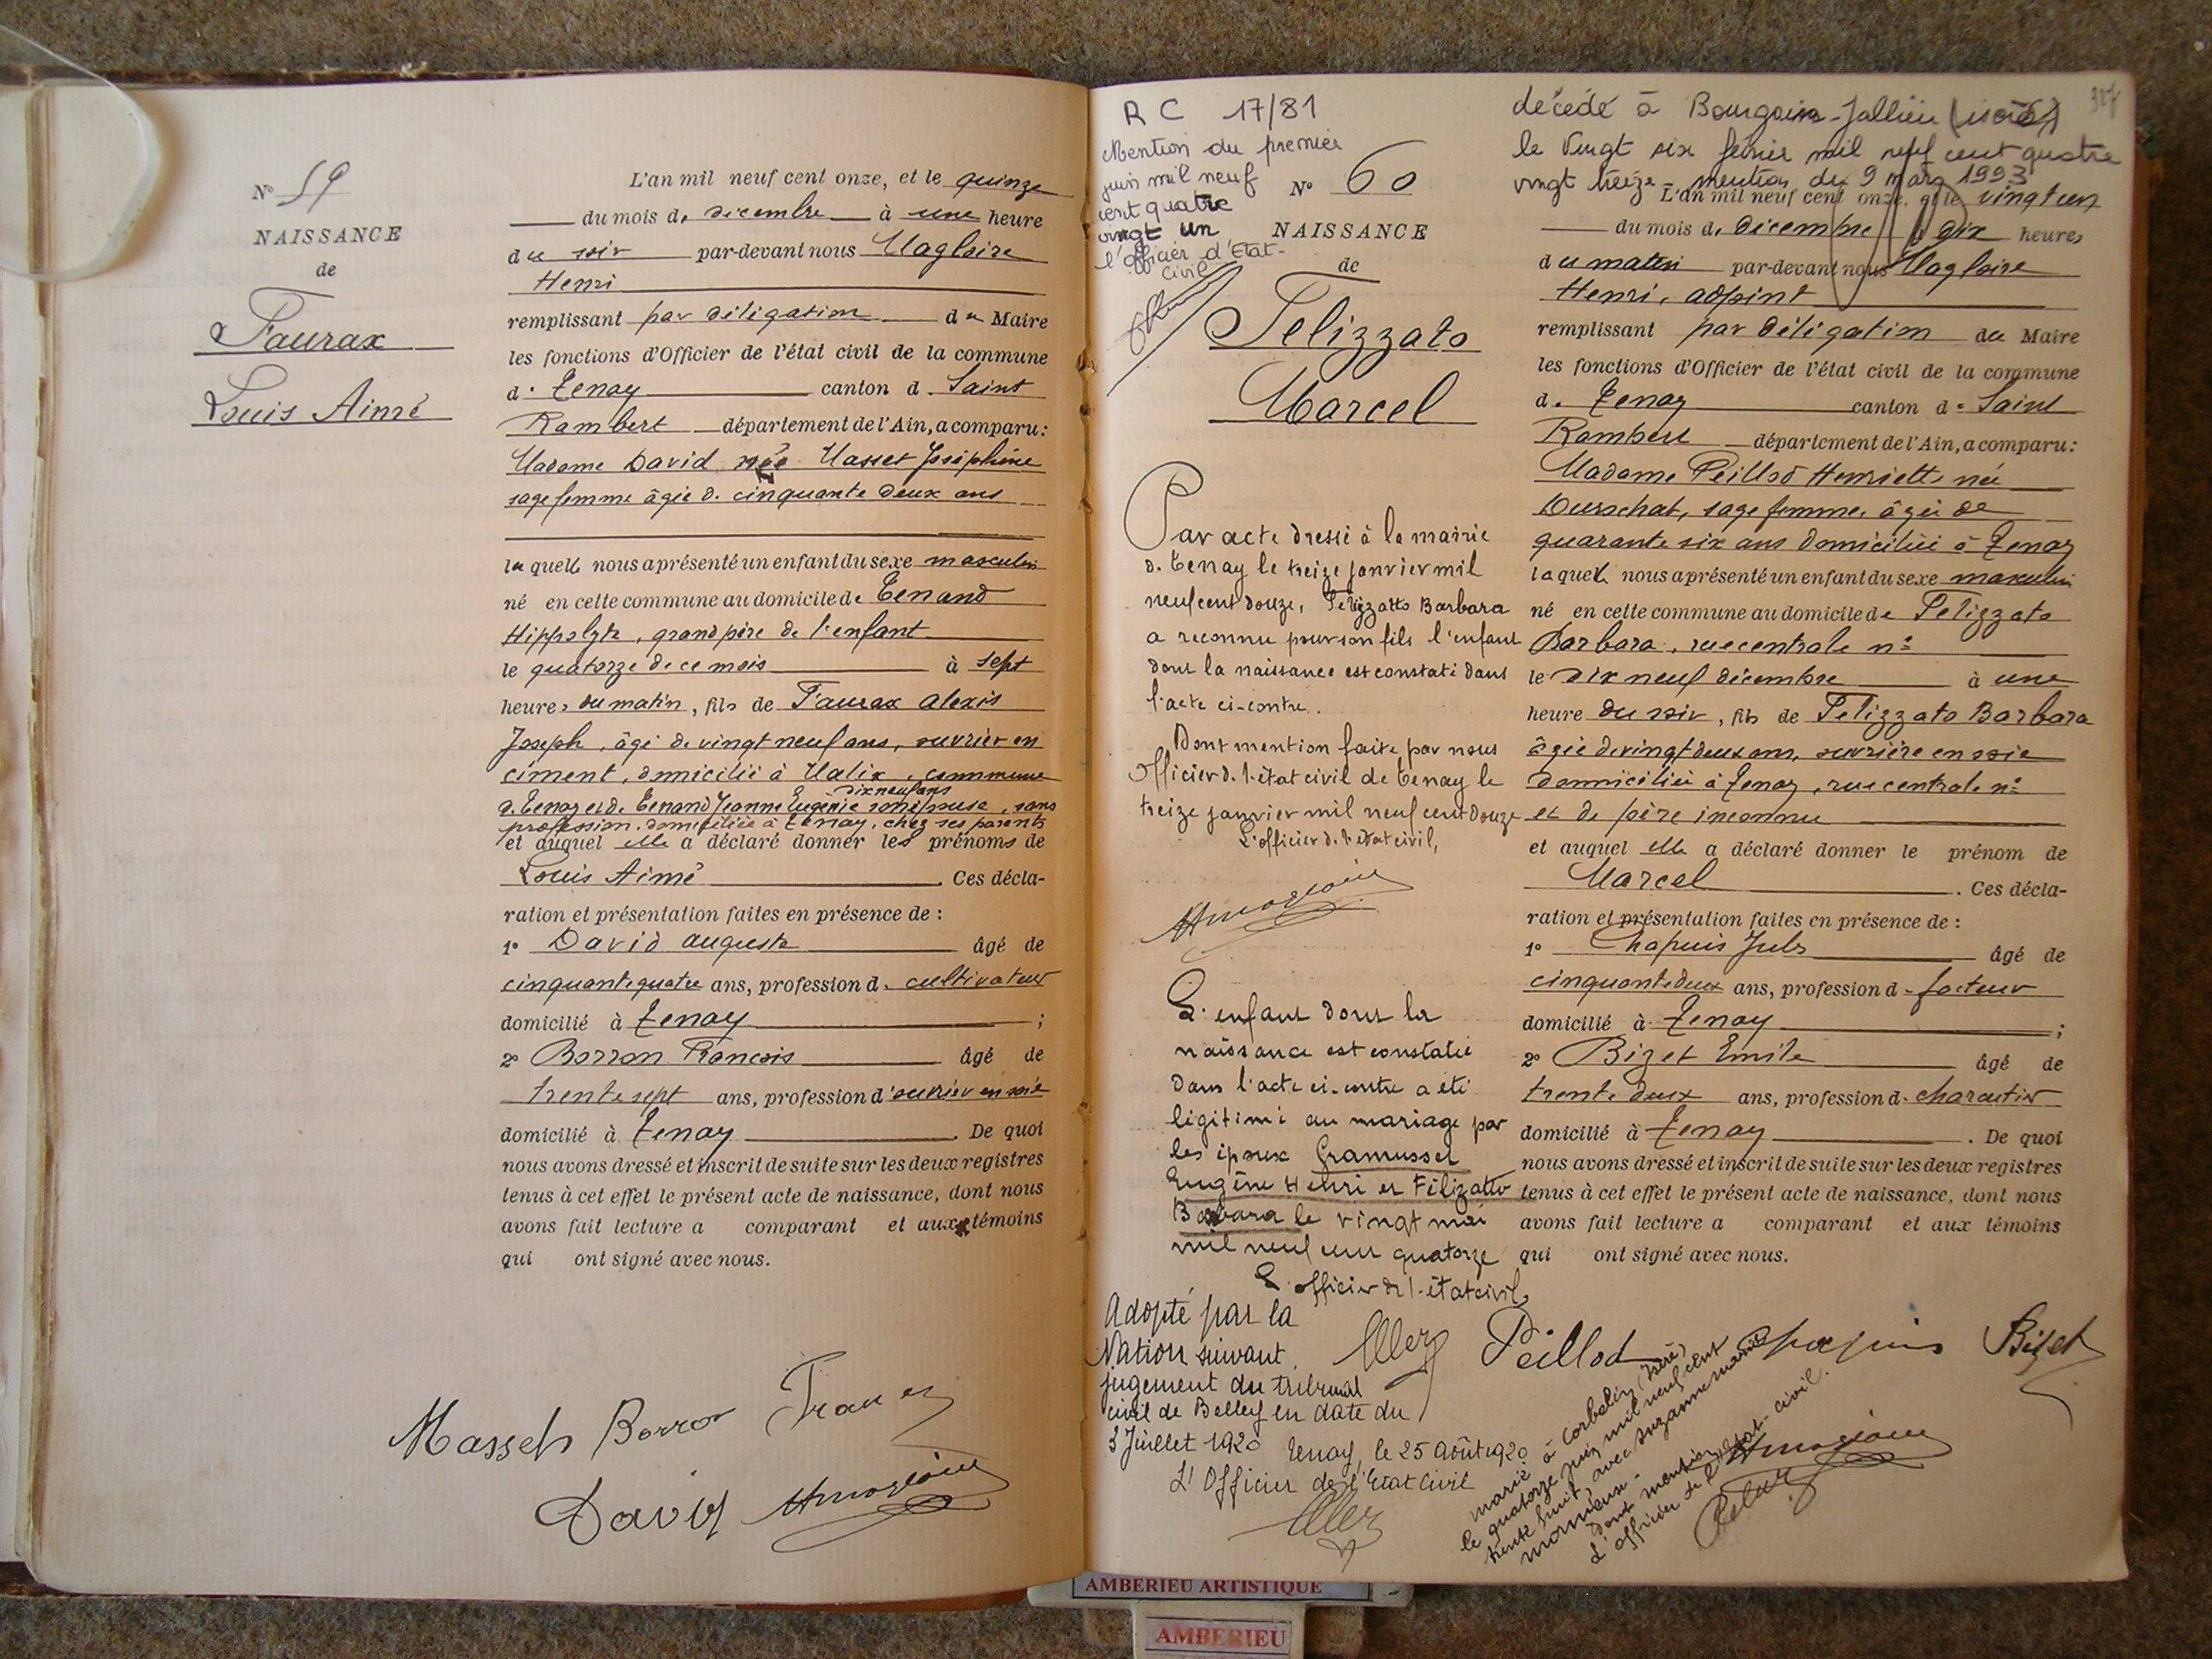 Nº 59
NAISSANCE
de
Faurax
Louis Aimé
L'an mil neuf cent onze, et le quinze
du mois de décembre à une heure
du soir par-devant nous Magloire
Henri
remplissant par déligation du Maire
les fonctions d'Officier de l'état civil de la commune
de Tenay canton de Saint
Rambert département de l'Ain, a comparu:
Madame David née Masset Joséphine
sage femme âgée de cinquante deux ans
laquelle nous a présenté un enfant du sexe masculin
né en cette commune au domicile de Tenand
Hippolyte, grand père de l'enfant
le quatorze de ce mois à sept
heures du matin, fils de Faurax Alexis
Joseph, âgé de vingt neuf ans, ouvrier en
ciment, domicilié à Malix, commune
dix neuf ans
de Tenay et de Tenand Jeanne Eugénie son épouse, sans
profession, domiciliée à Tenay, chez ses parents
et auquel elle a déclaré donner les prénoms de
Louis Aimé . Ces décla-
ration et présentation faites en présence de :
1º David Auguste âgé de
cinquante quatre ans, profession de cultivateur
domicilié à Tenay ;
2º Borron François âgé de
trente sept ans, profession d'ouvrier en soie
domicilié à Tenay . De quoi
nous avons dressé et inscrit de suite sur les deux registres
tenus à cet effet le présent acte de naissance, dont nous
avons fait lecture a comparant et aux témoins
qui ont signé avec nous.
Masset Borron
David
R C 17/81
Mention du premier
juin mil neuf
cent quatre
vingt un
l'officier d'Etat-
civil
Nº 60
NAISSANCE
de
Felizzato
Marcel
Par acte dressé à la mairie
de Tenay le treize janvier mil
neuf cent douze, Felizzato Barbara
a reconnu pour son fils l'enfant
dont la naissance est constaté dans
l'acte ci-contre.
Dont mention faite par nous
Officier de l'état civil de Tenay le
treize janvier mil neuf cent douze
L'officier de l'état civil,
L'enfant dont la
naissance est constatée
dans l'acte ci-contre a été
légitimé au mariage par
les époux Gramusset
Eugène Henri et Félizatto
Barbara le vingt mai
mil neuf cent quatorze
L'officier de l'état civil,
Adopté par la
Nation suivant
jugement du tribunal
civil de Belley en date du
3 Juillet 1920
Tenay, le 25 Août 1920
L'Officier de l'Etat Civil
décédé à Bourgoin-Jallieu (isère) 307
le vingt six février mil neuf cent quatre
vingt treize - mention du 9 mars 1993
L'an mil neuf cent onze, et le vingt un
du mois de décembre à dix heures
du matin par-devant nous Magloire
Henri, adjoint
remplissant par déligation du Maire
les fonctions d'Officier de l'état civil de la commune
de Tenay canton de Saint
Rambert département de l'Ain, a comparu:
Madame Peillod Henriette née
Durochat, sage femme, âgée de
quarante six ans domiciliée à Tenay
laquelle nous a présenté un enfant du sexe masculin
né en cette commune au domicile de Felizzato
Barbara, rue centrale nº
le dix neuf décembre à une
heure du soir, fils de Felizzato Barbara
âgée de vingt deux ans, ouvrière en soie
domiciliée à Tenay, rue centrale nº
et de père inconnu
et auquel elle a déclaré donner le prénom de
Marcel . Ces décla-
ration et présentation faites en présence de :
1º Chapuis Jules âgé de
cinquante deux ans, profession de facteur
domicilié à Tenay ;
2º Bizet Emile âgé de
trente deux ans, profession de charcutier
domicilié à Tenay . De quoi
nous avons dressé et inscrit de suite sur les deux registres
tenus à cet effet le présent acte de naissance, dont nous
avons fait lecture a comparant et aux témoins
qui ont signé avec nous.
Peillod Chapuis Bizet
marié à Corbelin (Isère)
le quatorze juin mil neuf cent
trente huit, avec Suzanne Marie
dont mention
L'officier de l'état-civil.
AMBERIEU ARTISTIQUE
AMBERIEU